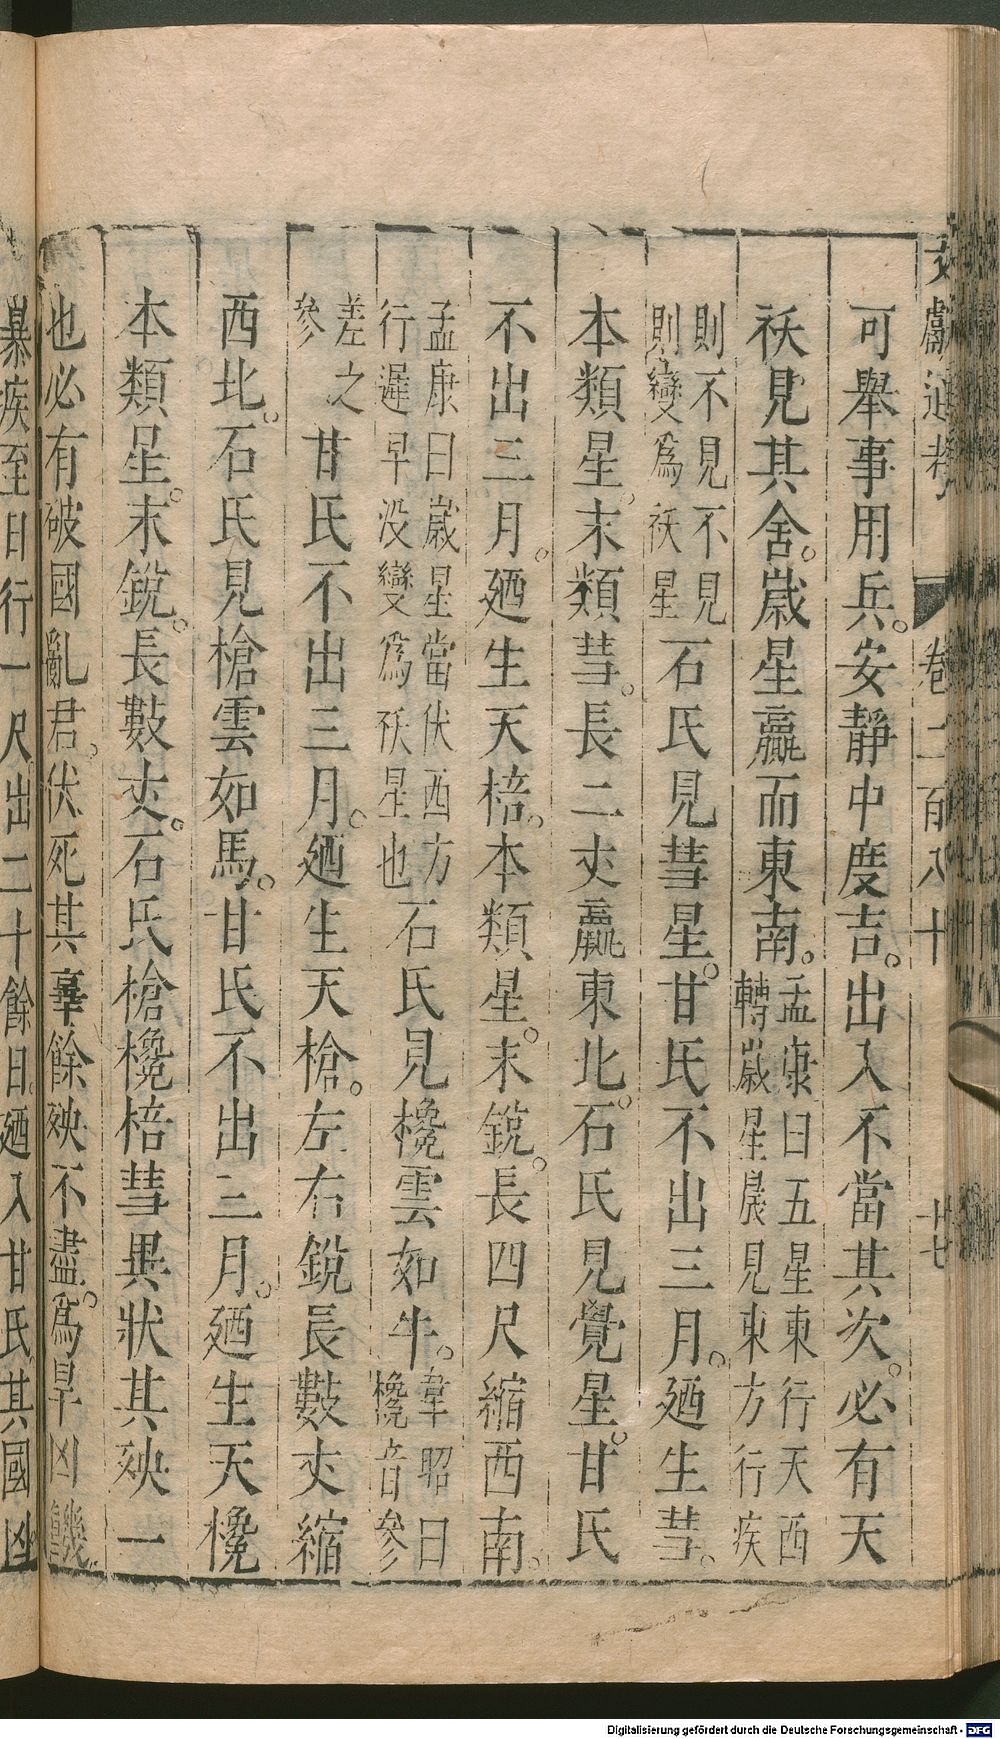 文獻通考 卷二百八十 廿七
可舉事用兵。安靜中度吉。出入不當其次。必有天
祅見其舍。歲星贏而東南。孟康曰五星東行天西轉歲星晨見東方行疾
則不見不見則變爲祅星石氏見彗星。甘氏不出三月。廼生彗。
本類星。末類彗。長二丈贏東北。石氏見覺星。甘氏
不出三月。廼生天棓。本類星。末銳。長四尺縮西南。
孟康曰歲星當伏西方行遲早没變爲祅星也石氏見欃雲如牛。韋昭曰欃音參
差之參甘氏不出三月。廼生天槍。左右銳長數丈縮
西北。石氏見槍雲如馬。甘氏不出三月。廼生天欃
本類星。末銳。長數丈。石氏槍欃棓彗異狀其殃一
也必有破國亂君。伏死其辜餘殃不盡。爲旱凶饑
暴疾至日行一尺出二十餘日。廼入甘氏其國凶
Digitalisierung gefördert durch die Deutsche Forschungsgemeinschaft - DFG